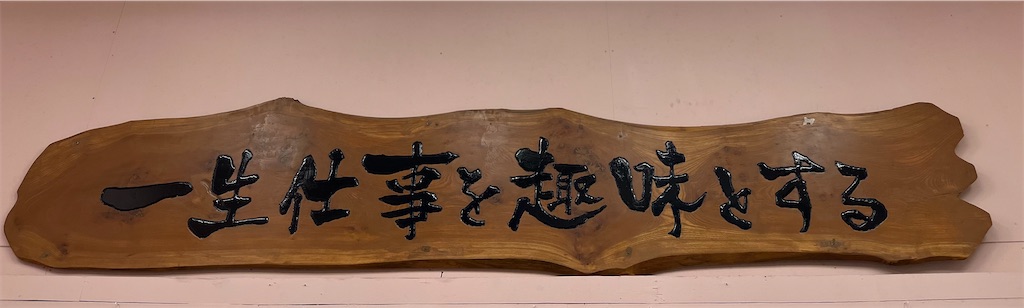 一生仕事を趣味とする